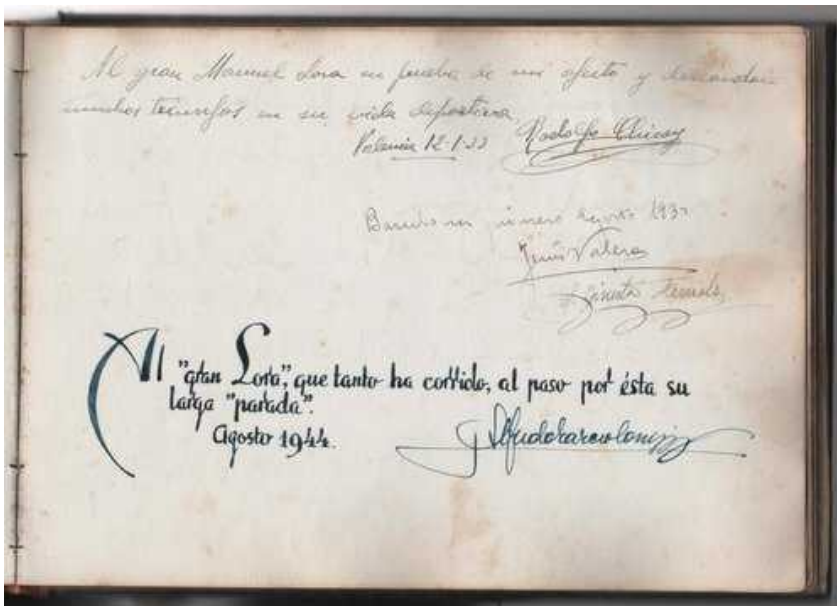 Al gran Manuel Lora en prueba de mi afecto y deseandole
muchos triunfos en su vida deportiva.
Valencia 12-1-33 Rodolfo Chicoy
1937
Jesús Valero
Al "gran Lora", que tanto ha corrido, al paso por ésta su
larga "parada".
Agosto 1944.